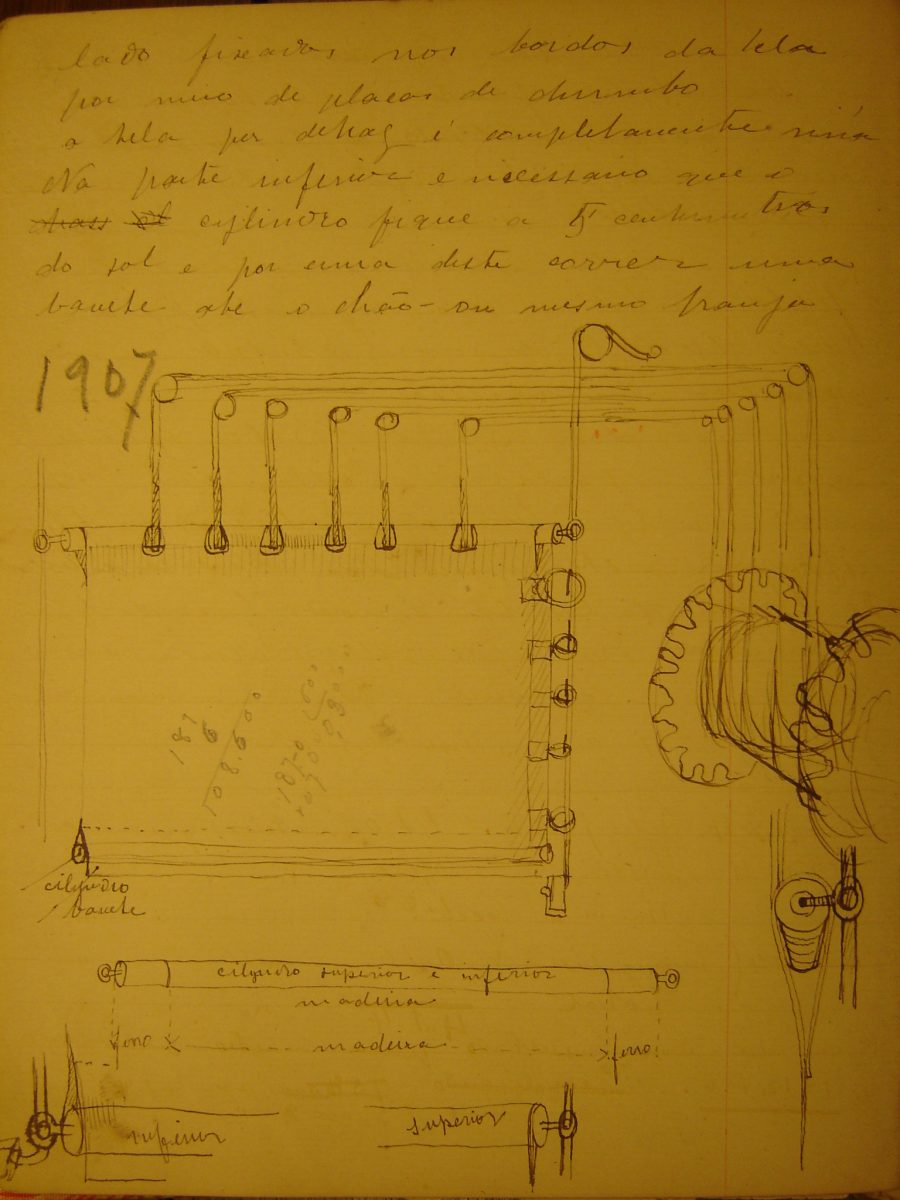 lado fixados nos bordos da tela
por meio de placas de chumbo
a tela per detraz é completamente
Na parte inferior e necessario que o
cylindro fique a 5 centimetros
do sol e por cima deste correr uma
banete ate o chão - ou mesmo franja
1907
187
6
108.600
1870
cilindro
banete
cilindro superior e inferior
madeira
ferro
madeira
ferro
inferior
superior